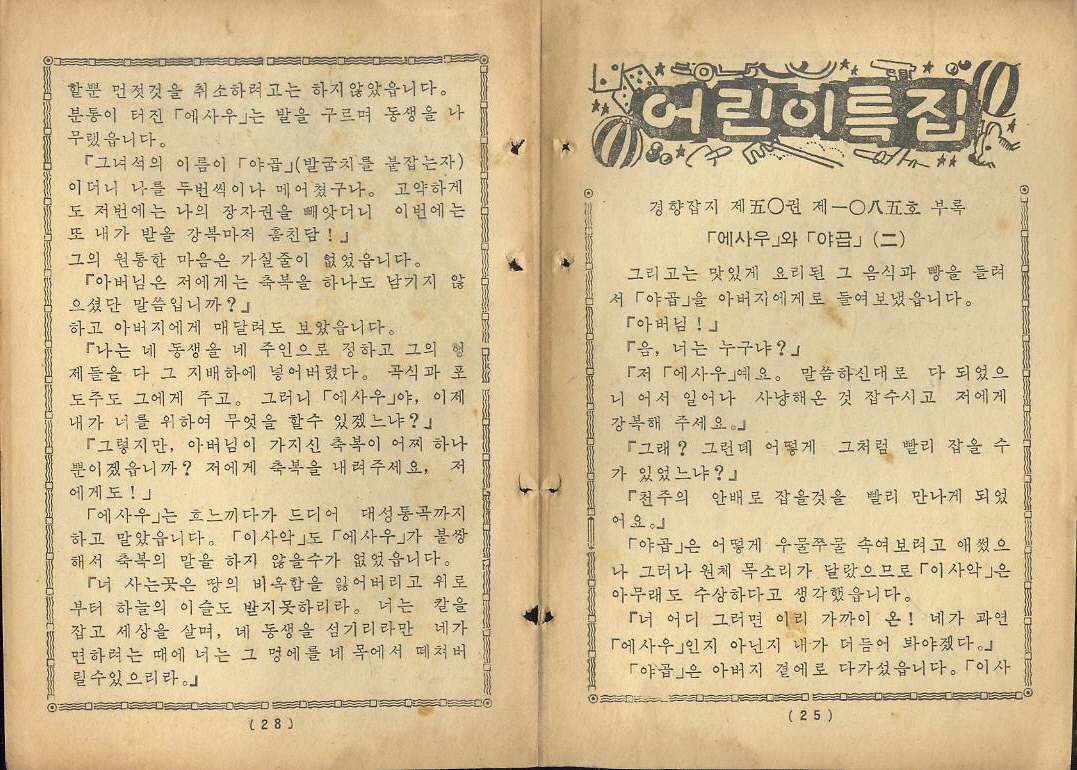 할뿐 먼젓것을 취소하려고는 하지않았읍니다.
분통이 터진 「에사우」는 발을 구르며 동생을 나
무랬읍니다.
『그녀석의 이름이 「야곱」(발굼치를 붙잡는자)
이더니 나를 두번씩이나 메어쳤구나。 고약하게
도 저번에는 나의 장자권을 빼앗더니 이번에는
또 내가 받을 강복마저 훔친담！』
그의 원통한 마음은 가실줄이 없었읍니다.
『아버님은 저에게는 축복을 하나도 남기지 않
으셨단 말씀입니까？』
하고 아버지에게 매달려도 보았읍니다。
『나는 네 동생을 네 주인으로 정하고 그의 형
제들을 다 그 지배하에 넣어버렸다。 곡식과 포
도주도 그에게 주고。 그러니 「에사우」야, 이제
내가 너를 위하여 무엇을 할수 있겠느냐？』
『그렇지만, 아버님이 가지신 축복이 어찌 하나
뿐이겠읍니까？ 저에게 축복을 내려주세요, 저
에게도！』
「에사우」는 흐느끼다가 드디어 대성통곡까지
하고 말았읍니다。 「이사악」도 「에사우」가 불쌍
해서 축복의 말을 하지 않을수가 없었읍니다。
『너 사는곳은 땅의 비옥함을 잃어버리고 위로
부터 하늘의 이슬도 받지못하리라。 너는 칼을
잡고 세상을 살며, 네 동생을 섬기리라만 네가
면하려는 때에 너는 그 멍에를 네 목에서 떼쳐버
릴수있으리라。』
(28)
어린이특집
경향잡지 제五〇권 제一〇八五호 부록
「에사우」와 「야곱」(二)
그리고는 맛있게 요리된 그 음식과 빵을 들려
서 「야곱」을 아버지에게로 들여보냈읍니다。
『아버님！』
『음, 너는 누구냐？』
『저 「에사우」예요。 말씀하신대로 다 되었으
니 어서 일어나 사냥해온 것 잡수시고 저에게
강복해 주세요。』
『그래？ 그런데 어떻게 그처럼 빨리 잡을 수
가 있었느냐？』
『천주의 안배로 잡을것을 빨리 만나게 되었
어요。』
「야곱」은 어떻게 우물쭈물 속여보려고 애썼으
나 그러나 원체 목소리가 달랐으므로 「이사악」은
아무래도 수상하다고 생각했읍니다。
『너 어디 그러면 이리 가까이 온！ 네가 과연
「에사우」인지 아닌지 내가 더듬어 봐야겠다。』
「야곱」은 아버지 곁에로 다가섰읍니다。「이사
(25)